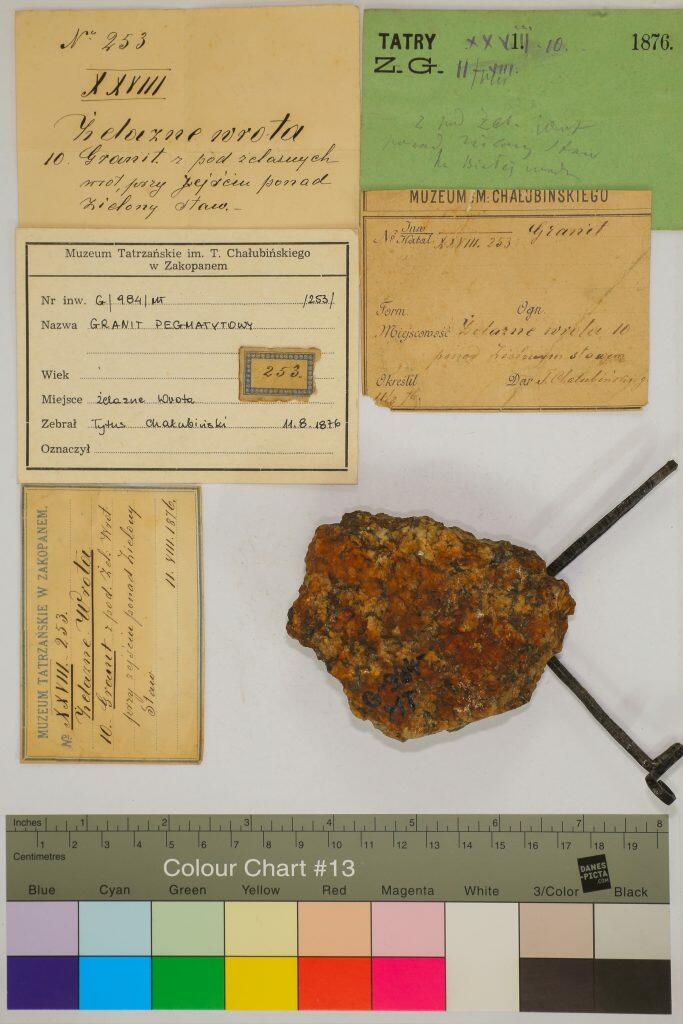 No 253
XXVIII
Żelazne wrota
10. Granit z pod żelaznych
wrót, przy zejściu ponad
Zielony staw.-
TATRY XXVIII. 10. 1876.
Z. G. 11-VIII.
z pod Żel. wrót
ponad Zielony Staw
MUZEUM M. CHAŁUBIŃSKIEGO
No Inw. XXVIII. 253 Granit
Katal.
Form. Ogn.
Miejscowość Żelazne wrota 10
ponad Zielonym stawem
Określił Dar T. Chałubińskiego
11.8.76.
Muzeum Tatrzańskie im. T. Chałubińskiego
w Zakopanem
Nr inw. G/984/MT /253/
Nazwa GRANIT PEGMATYTOWY
Wiek
253.
Miejsce żelazne Wrota
Zebrał Tytus Chałubiński 11.8.1876
Oznaczył
MUZEUM TATRZAŃSKIE W ZAKOPANEM.
No XXVIII. 253.
Żelazne Wrota
10. Granit z pod Żel. Wrót
przy zejściu ponad Zielony
Staw
11. VIII. 1876.
G 984
MT
Inches 1 2 3 4 5 6 7 8
1 2 3 4 5 6 7 8 9 10 11 12 13 14 15 16 17 18 19
Centimetres
Colour Chart #13
DANES
-PICTA
.COM
Blue Cyan Green Yellow Red Magenta White 3/Color Black